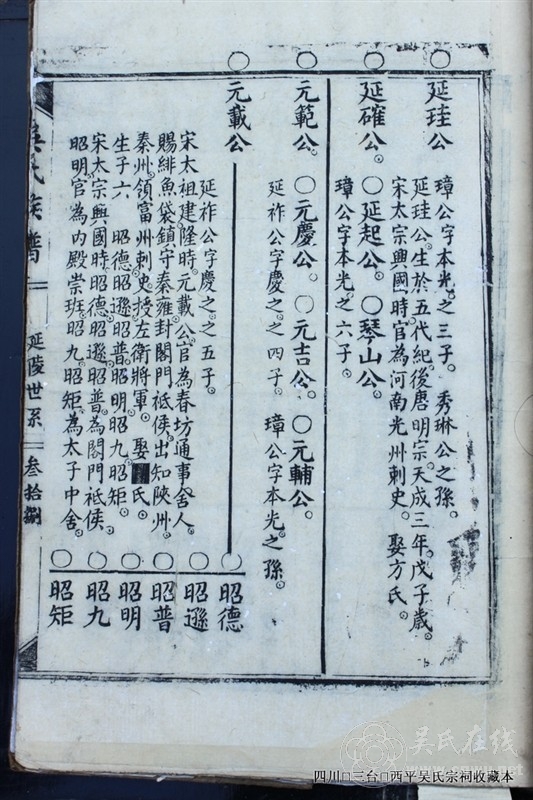 延珪公
璋公字本光。之三子。 秀琳公之孫。
延珪公。生於五代紀後唐明宗。天成三年。戊子歲。
宋太宗興國時。官為河南光州刺史。 娶方氏。
延確公。○延起公。○琴山公。
璋公字本光。之六子。
元範公。○元慶公。○元吉公。○元輔公。
延祚公字慶之。之四子。 璋公字本光。之孫。
元載公
延祚公字慶之。之五子。
宋太祖建隆時。元載公。官為春坊通事舍人。
賜緋魚袋。鎮守秦雍。封閣門祗侯。出知陝州。
秦州。領富州刺史。授左衛將軍。 娶 氏。
生子六 昭德。昭遜。昭普。昭明。昭九。昭矩。
宋太宗興國時。昭德。昭遜。昭普。為閣門祗侯。
昭明。官為內殿崇班。昭九。昭矩。為太子中舍。
昭德
昭遜
昭普
昭明
昭九
昭矩
吳氏族譜
延陵世系
叁拾捌
吴氏在线
四川□三台□西平吴氏宗祠收藏本